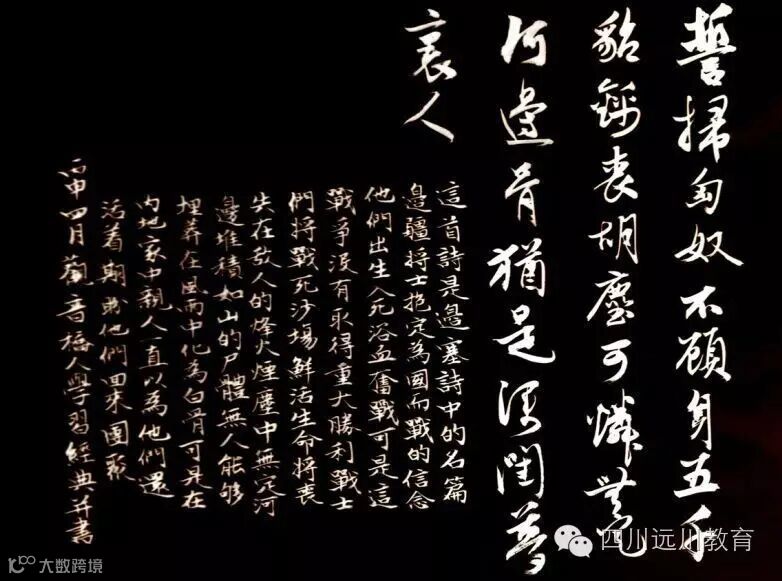 誓掃匈奴不顧身五千
貂錦喪胡塵可憐無定
河邊骨猶是深閨夢
裏人
這首詩是邊塞詩中的名篇
邊疆將士抱定為國而戰的信念
他們出生入死浴血奮戰可是這
戰爭沒有取得重大勝利戰士
們將戰死沙場鮮活生命將喪
失在敌人的烽火煙塵中無定河
邊堆積如山的尸體無人能够
埋葬在風雨中化為白骨可是在
内地家中親人一直以為他們還
活着期盼他們回來團聚
丙申四月觀音橋人學習經典并書
四川远川教育
大数跨境